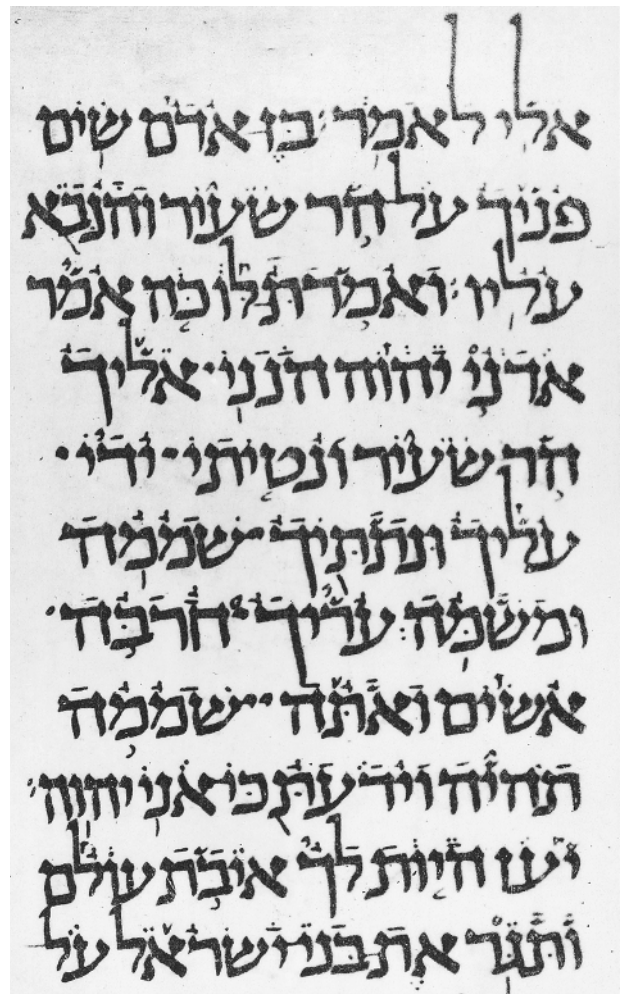 אלי לאמר בן אדם שים
פניך על הר שעיר והנבא
עליו ואמרת לו כה אמר
אדני יהוה הנני אליך
הר שעיר ונטיתי ידי
עליך ונתתיך שממה
ומשמה עריך חרבה
אשים ואתה שממה
תהיה וידעת כי אני יהוה
יען היות לך איבת עולם
ותגר את בני ישראל על